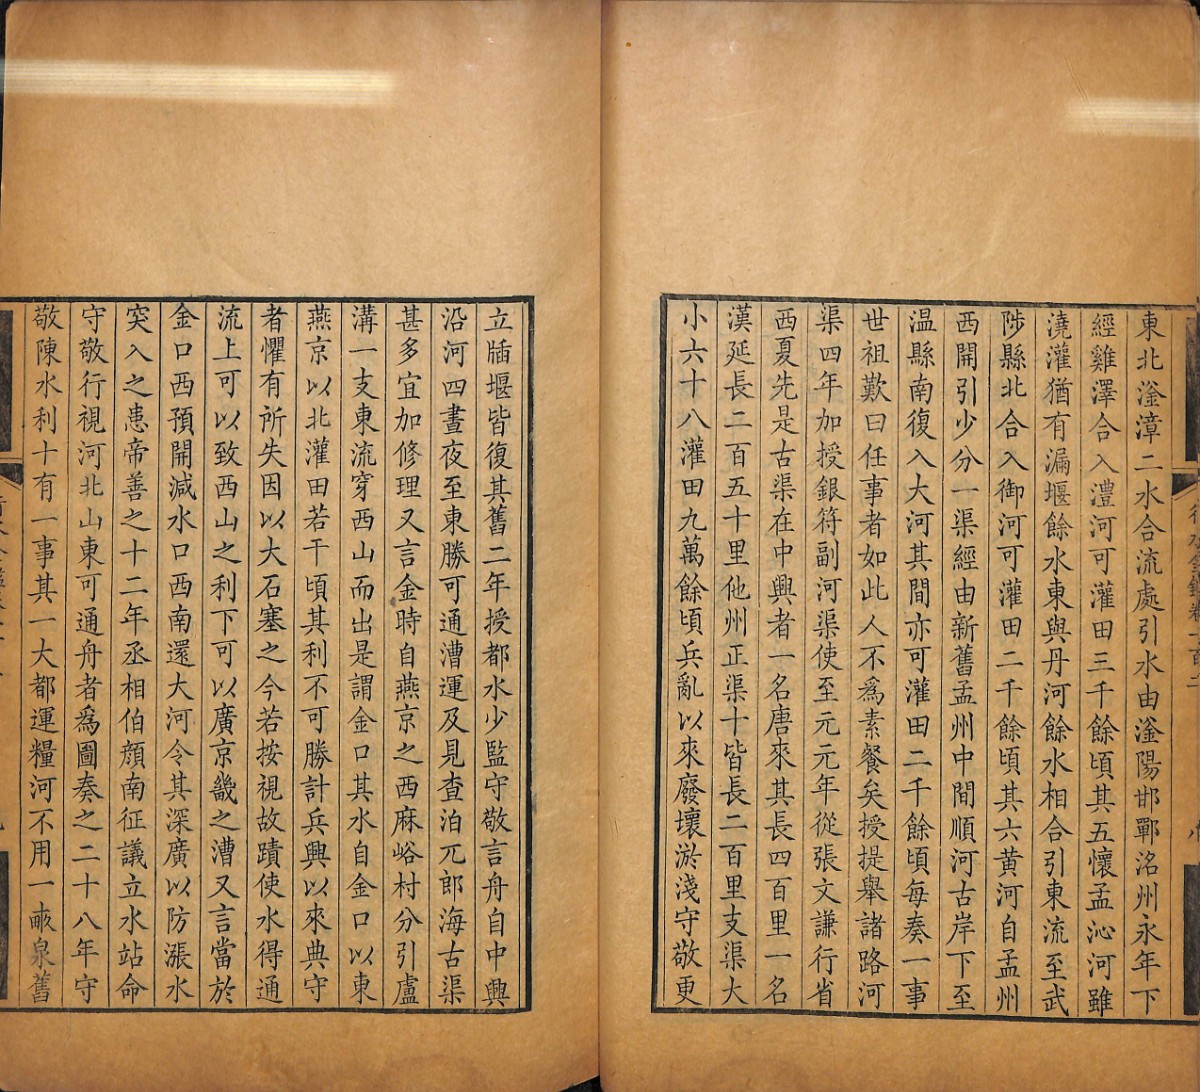 東北滏漳二水合流處引水由滏陽邯鄲洺州永年下
經雞澤合入澧河可灌田三千餘頃其五懷孟沁河雖
澆灌猶有漏堰餘水東與丹河餘水相合引東流至武
陟縣北合入御河可灌田二千餘頃其六黃河自孟州
西開引少分一渠經由新舊孟州中間順河古岸下至
温縣南復入大河其間亦可灌田二千餘頃每奏一事
世祖歎曰任事者如此人不爲素餐矣授提舉諸路河
渠四年加授銀符副河渠使至元元年從張文謙行省
西夏先是古渠在中興者一名唐來其長四百里一名
漢延長二百五十里他州正渠十皆長二百里支渠大
小六十八灌田九萬餘頃兵亂以來廢壞淤淺守敬更
立牐堰皆復其舊二年授都水少監守敬言舟自中興
沿河四晝夜至東勝可通漕運及見查泊兀郎海古渠
甚多宜加修理又言金時自燕京之西麻峪村分引盧
溝一支東流穿西山而出是謂金口其水自金口以東
燕京以北灌田若干頃其利不可勝計兵興以來典守
者懼有所失因以大石塞之今若按視故蹟使水得通
流上可以致西山之利下可以廣京畿之漕又言當於
金口西預開減水口西南還大河令其深廣以防漲水
突入之患帝善之十二年丞相伯顔南征議立水站命
守敬行視河北山東可通舟者爲圖奏之二十八年守
敬陳水利十有一事其一大都運糧河不用一畝泉舊